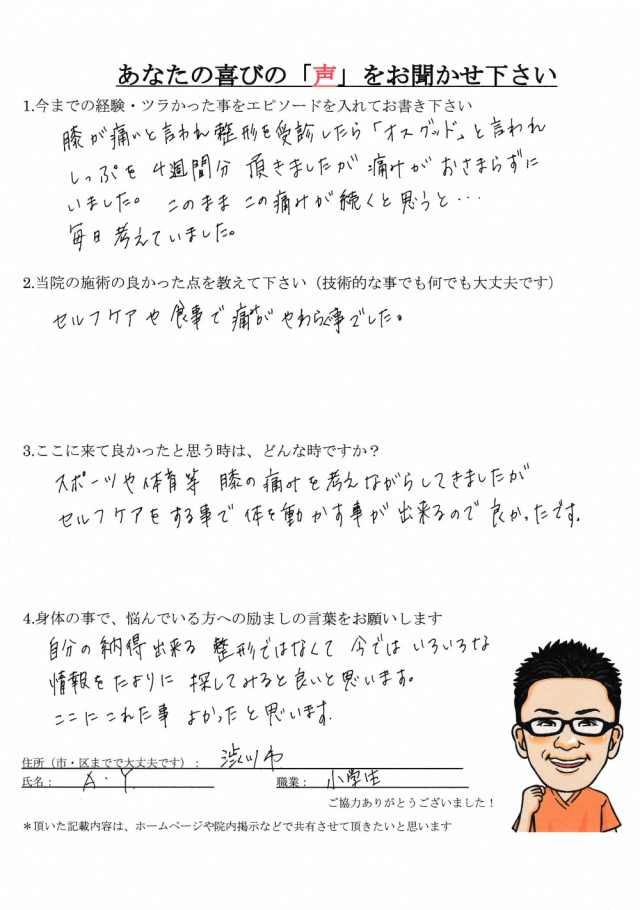 あなたの喜びの「声」をお聞かせ下さい
1.今までの経験・ツラかった事をエピソードを入れてお書き下さい
膝が痛いと言われ整形を受診したら「オスグッド」と言われ
しっぷを 4週間分 頂きましたが 痛みが おさまらずに
いました。 このまま この痛みが 続くと思うと・・・
毎日考えていました。
2.当院の施術の良かった点を教えて下さい（技術的な事でも何でも大丈夫です）
セルフケアや 食事で 痛みが やわらぐ事でした。
3.ここに来て良かったと思う時は、どんな時ですか？
スポーツや体育等 膝の痛みを考えながらしてきましたが
セルフケアをする事で 体を動かす事が 出来るので 良かったです。
4.身体の事で、悩んでいる方への励ましの言葉をお願いします
自分の納得出来る 整形ではなくて 今では いろいろな
情報をたよりに 探してみると良いと思います。
ここにこれた事 よかったと思います。
住所（市・区までで大丈夫です）： 渋川市
氏名： A・Y. 職業： 小学生
ご協力ありがとうございました！
＊頂いた記載内容は、ホームページや院内掲示などで共有させて頂きたいと思います